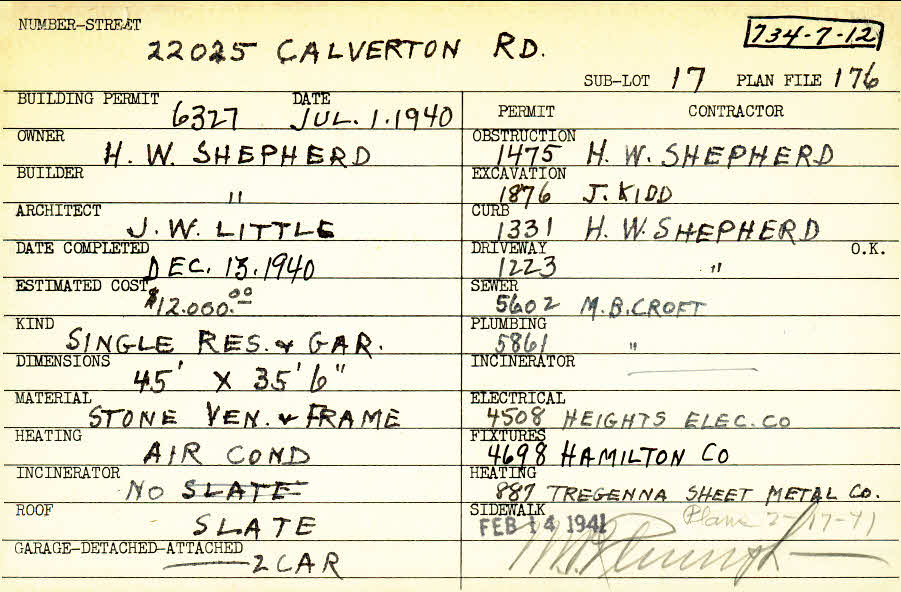 NUMBER-STREET
22025 CALVERTON RD.
734-7-12
SUB-LOT 17 PLAN FILE 176
BUILDING PERMIT 6327 DATE JUL. 1. 1940
OWNER H. W. SHEPHERD
BUILDER "
ARCHITECT J. W. LITTLE
DATE COMPLETED DEC. 13. 1940
ESTIMATED COST $12.000.00
KIND SINGLE RES. & GAR.
DIMENSIONS 45' X 35' 6"
MATERIAL STONE VEN. & FRAME
HEATING AIR COND
INCINERATOR NO SLATE
ROOF SLATE
GARAGE-DETACHED-ATTACHED 2 CAR
PERMIT CONTRACTOR
OBSTRUCTION 1475 H. W. SHEPHERD
EXCAVATION 1876 J. KIDD
CURB 1331 H. W. SHEPHERD
DRIVEWAY 1223 " O.K.
SEWER 5602 M. B. CROFT
PLUMBING 5861 "
INCINERATOR
ELECTRICAL 4508 HEIGHTS ELEC. CO
FIXTURES 4698 HAMILTON CO
HEATING 887 TREGENNA SHEET METAL CO.
SIDEWALK FEB 14 1941 Plans 2-17-41